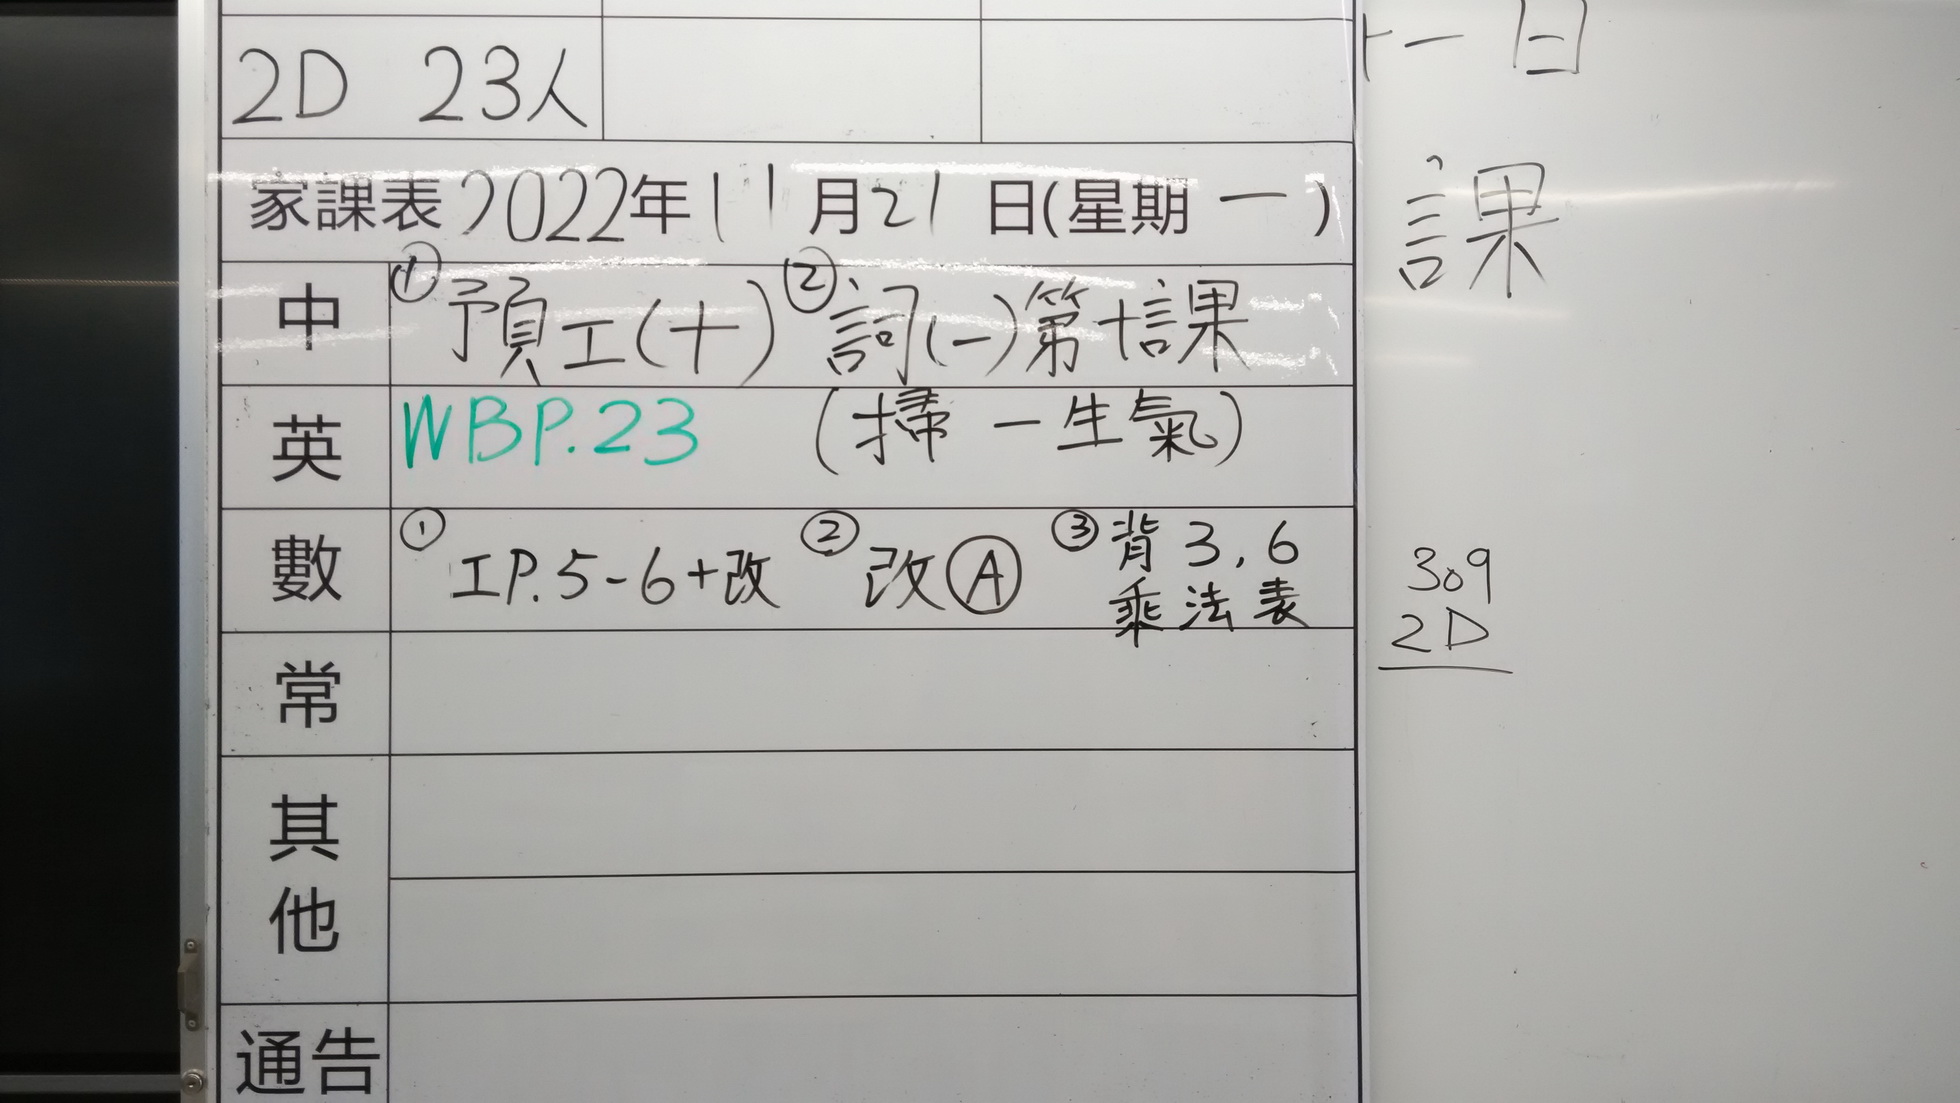 2D 23人
家課表2022年11月21日(星期一)
中 ①預工(十) ②詞(一)第十課
(掃-生氣)
英 WBP.23
數 ①工P.5-6+改 ②改Ⓐ ③背3,6
乘法表
常
其他
通告
十一日
課
309
2D